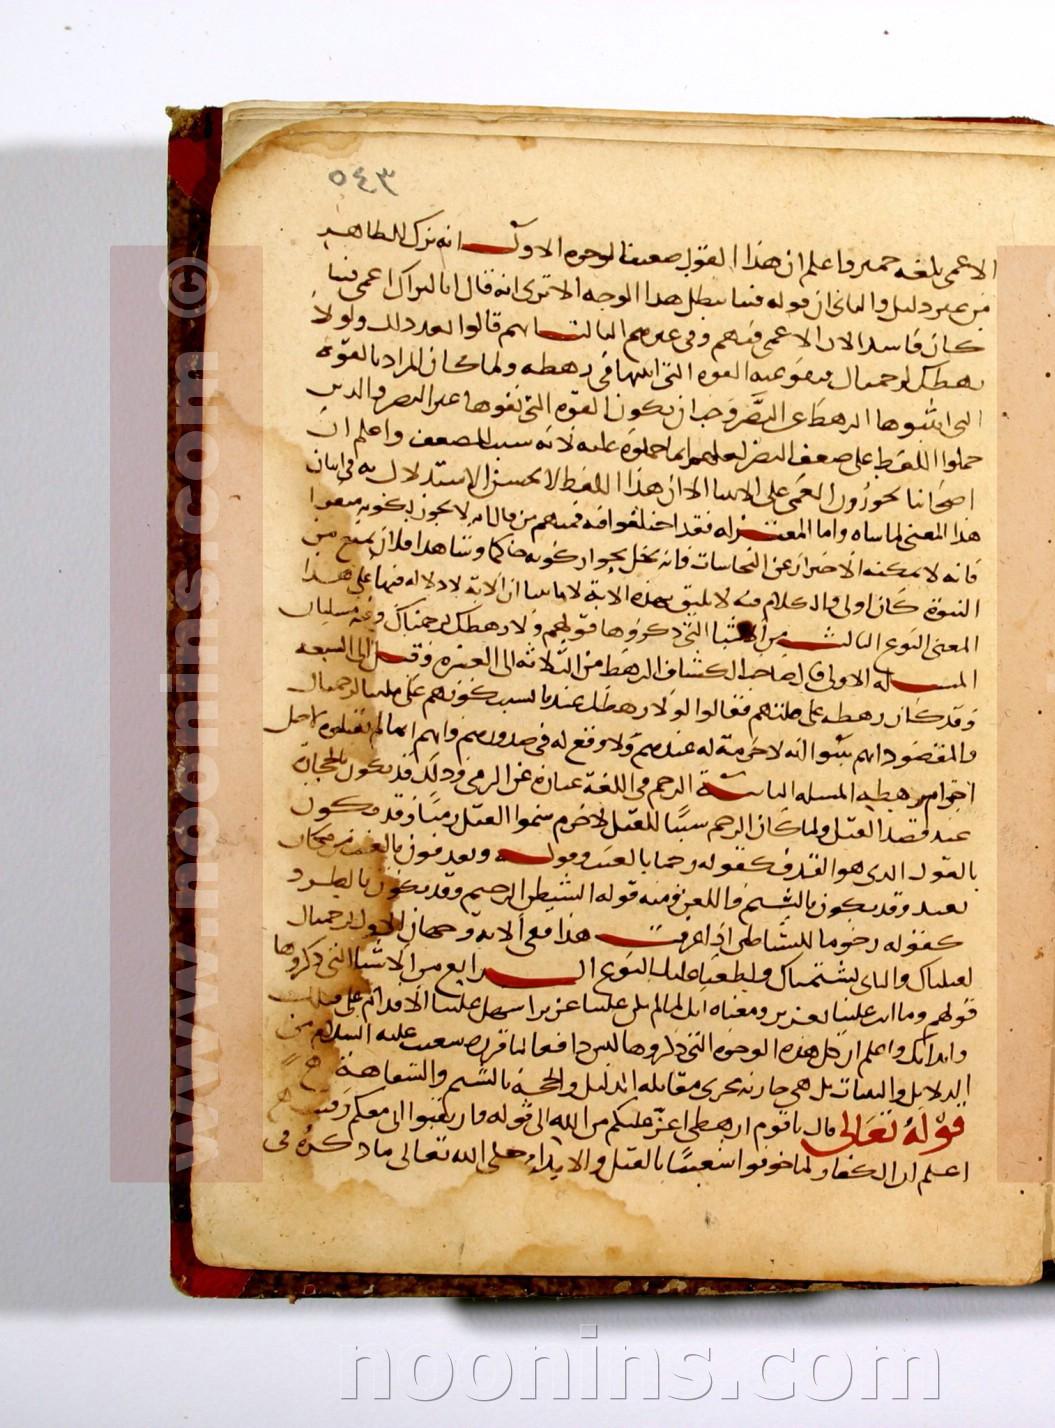 ٥٤٣
الاعمى بلغة حمير واعلم ان هذا القول ضعيف لوجوه الاول انه ترك للظاهر
من غير دليل والثانى ان قوله فينا يبطل هذا الوجه الا ترى انه قال انا لنراك اعمى فينا
كان فاسدا لان الاعمى فيهم وفى غيرهم الثالث انهم قالوا بعد ذلك ولولا
رهطك لرجمناك فنفوا عنه القوة التى اثبتوها فى رهطه ولما كان المراد بالقوة
التى اثبتوها الرهط هى النصرة وجب ان يكون القوة التى نفوها عنه النصرة والذين
حملوا اللفظ على ضعف البصر لعلهم انما حملوه عليه لانه سبب الضعف واعلم ان
اصحابنا يجوزون العمى على الانبيا الا ان هذا اللفظ لا يحسن الاستدلال به فى اثبات
هذا المعنى لما بيناه واما المعتزلة فقد اختلفوا فيه فمنهم من قال انه لا يجوز لكونه منفرا
فانه لا يمكنه الاحتراز عن النجاسات فانه يخل بجواز كونه حاكما وشاهدا فلان يمنع من
النبوة كان اولى والكلام فيه لا يليق بهذه الاية لانا بينا ان الاية لا دلالة فيها على هذا
المعنى النوع الثالث من الاشيا التى ذكروها قولهم ولولا رهطك لرجمناك وفيه مسئلتان
المسئلة الاولى قال صاحب الكشاف الرهط من الثلاثة الى العشرة وقيل الى السبعة
وقد كان رهطه على ملتهم فقالوا لولا رهطك عندنا بسبب كونهم على ملتنا لرجمناك
والمقصود انهم بينوا انه لا حرمة له عندهم ولا وقع له فى صدورهم وانهم انما لم يقتلوه لاجل
احترام رهطه المسئلة الثانية الرجم فى اللغة عبارة عن الرمى وذلك قد يكون بالحجارة
عند قصد القتل ولما كان الرجم سببا للقتل لا جرم سموا القتل رجما وقد يكون
بالقول الذى هو القذف كقوله رجما بالغيب وقوله ويقذفون بالغيب من مكان
بعيد وقد يكون بالشتم واللعن ومنه قوله الشيطان الرجيم وقد يكون بالطرد
كقوله رجوما للشياطين اذا عرفت هذا ففى الاية وجهان الاول لرجمناك
لقتلناك والثانى لشتمناك ولطعنا عليك النوع الرابع من الاشيا التى ذكروها
قولهم وما انت علينا بعزيز ومعناه انك لما لم تكن علينا عزيزا سهل علينا الاقدام على قتلك
وايذائك واعلم ان كل هذه الوجوه التى ذكروها ليس دافعا لما قرره شعيب عليه السلام من
الدلائل والبينات بل هى جارية مجرى مقابلة الدليل والحجة بالشتم والسفاهة
قوله تعالى قال يا قوم ارهطى اعز عليكم من الله الى قوله وارتقبوا انى معكم رقيب
اعلم ان الكفار لما خوفوا شعيبا بالقتل والايذاء حكى الله تعالى ما ذكره فى
noonins.com
www.noonins.com ©